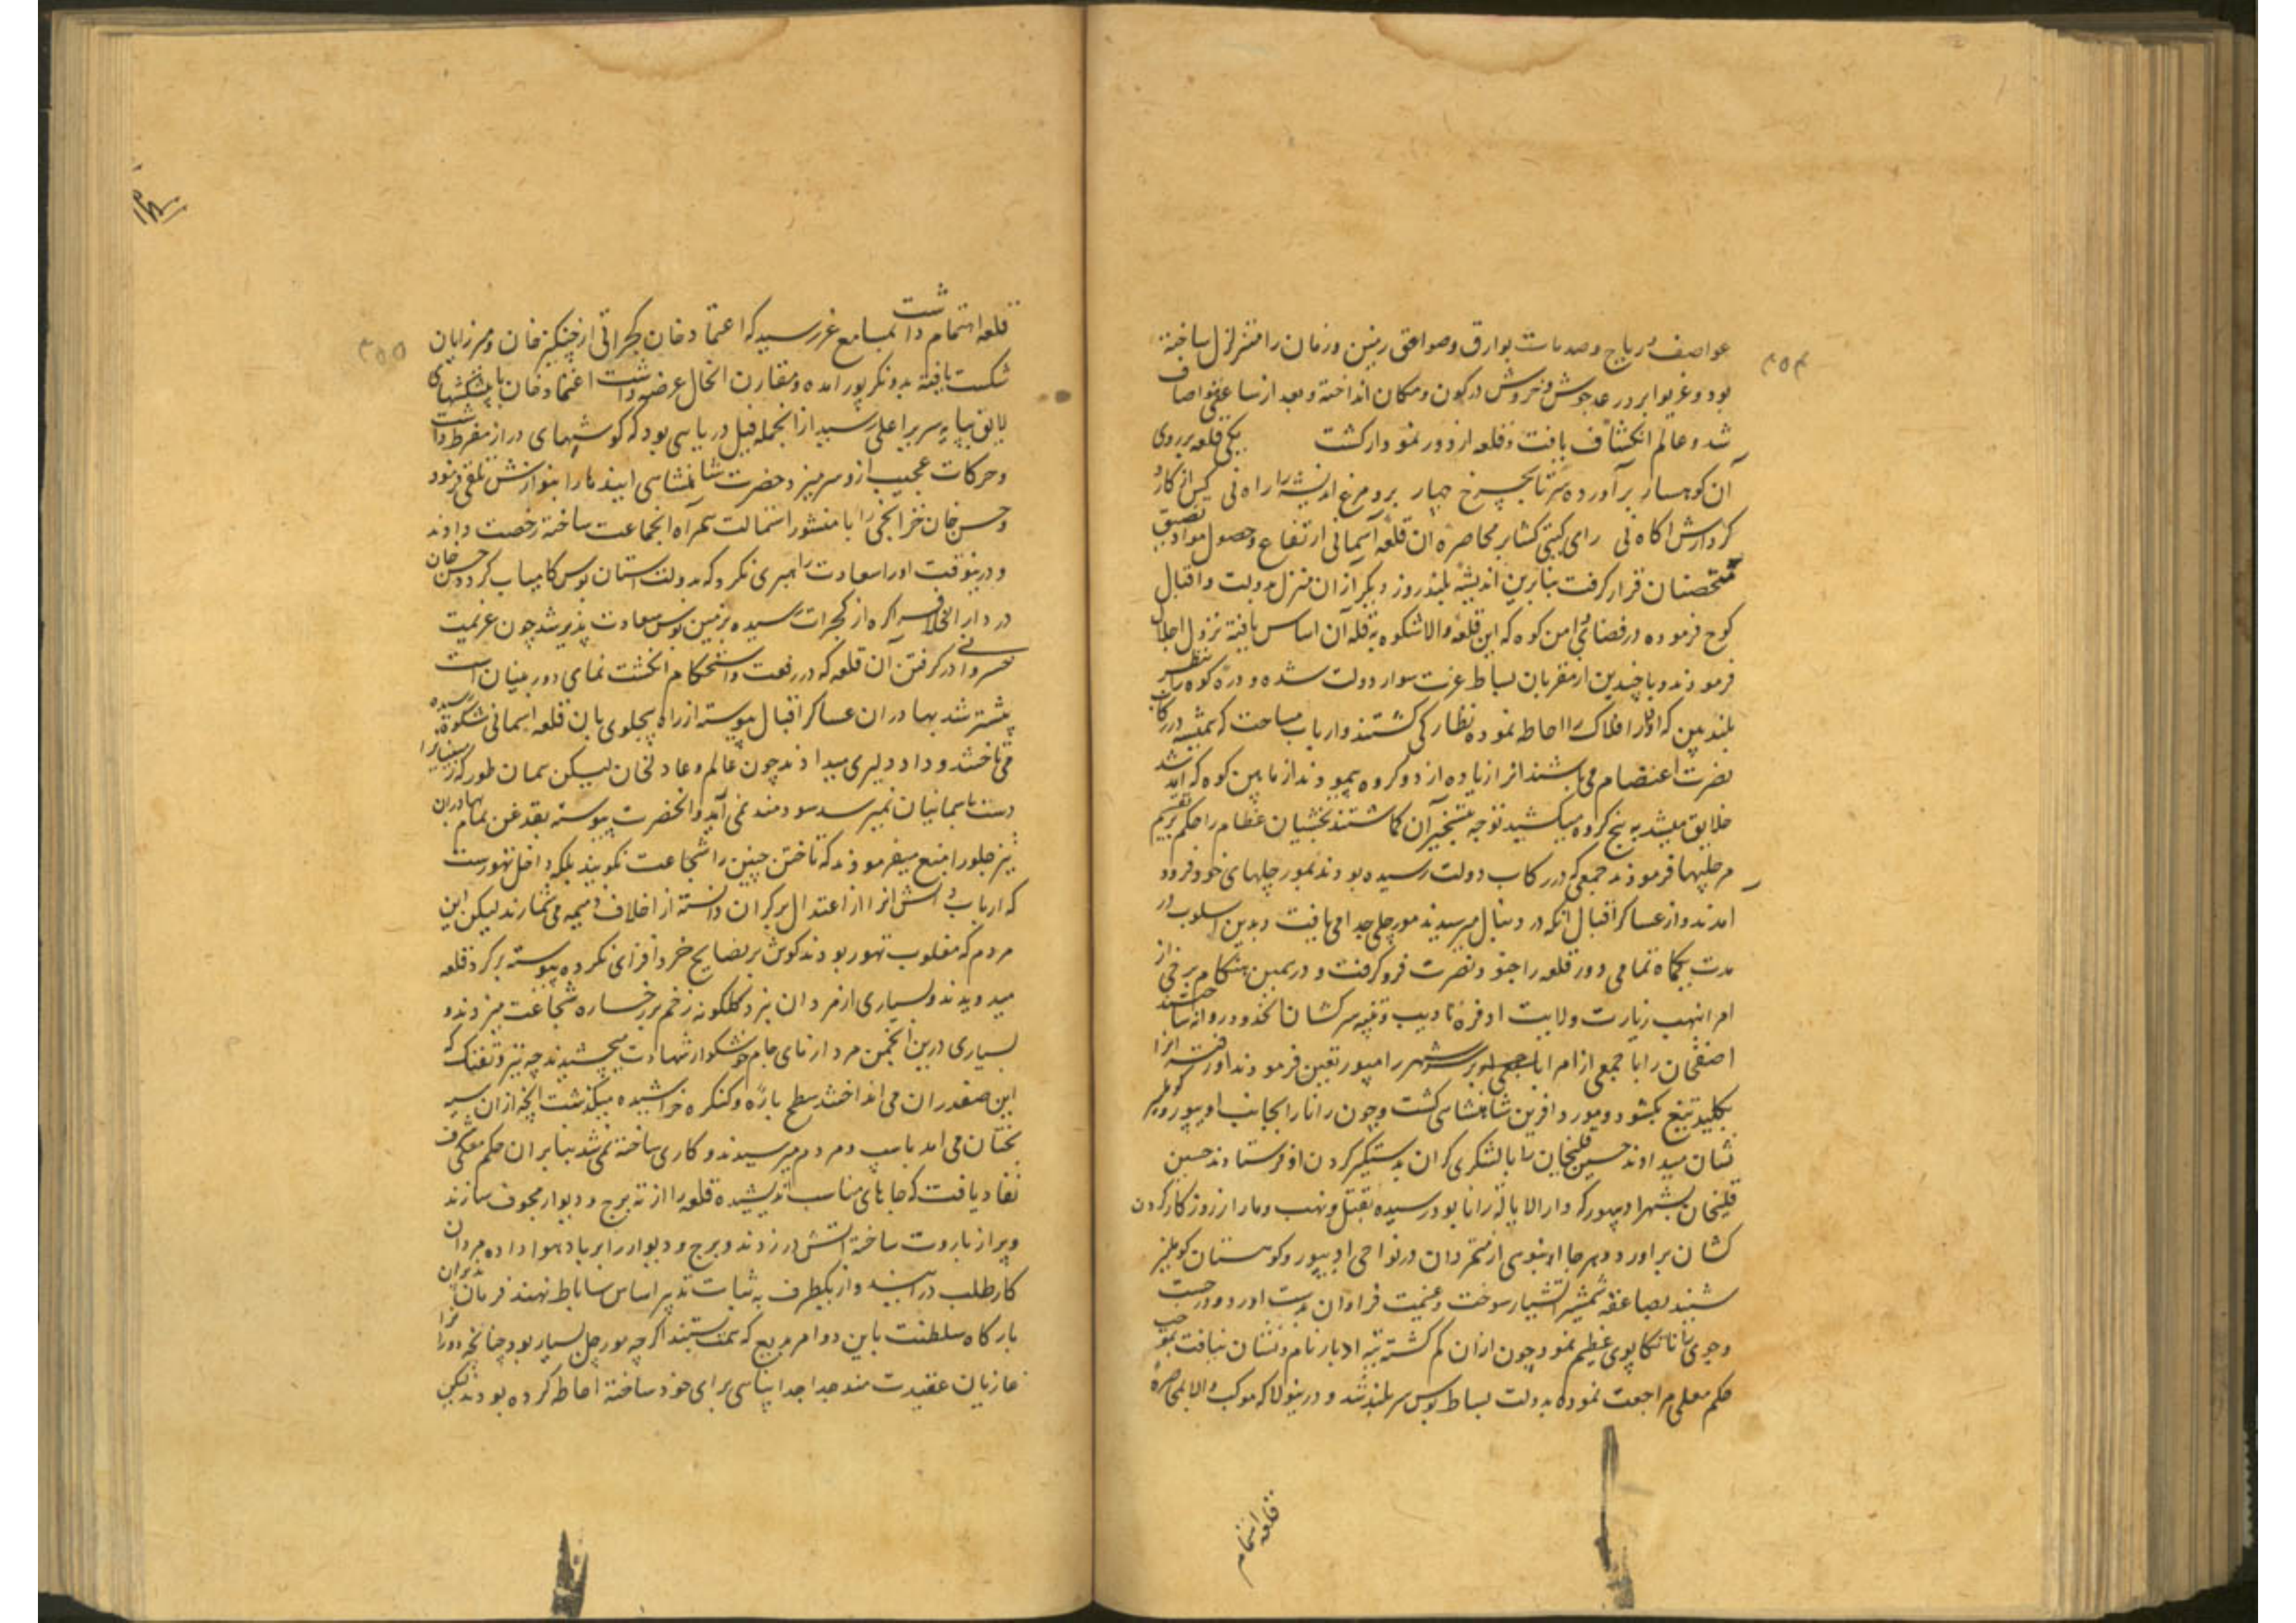 ۳۵۴
عواصف ریاح و صدمات بوارق و صواعق زمین و زمان را متزلزل ساخته
بود و غریو ابر و رعد جوش و خروش در کون و مکان انداخته و بعد از ساعتی هوا صاف
شد و عالم انکشاف یافت و قلعه از دور نمودار کشت یکی قلعه بر روی
آن کوهسار برآورده سر تا بچرخ چهار برو مرغ اندیشه را راه نی کس از کار و
کردارش اکاه نی رای کیتی کشا بر محاصره آن قلعه آسمانی ارتفاع و حصول مواد تضیق
متحصنان قرار کرفت بنابرین اندیشه بلند روز دیکر از آن منزل بدولت و اقبال
کوچ فرموده در فضای دامن کوه که این قلعه والا شکوه بقله آن اساس یافته نزول اجلال
فرمودند و با چندین از مقربان بساط عزت سوار دولت شده و دره کوه را بنظر
بلند بین که ادوار افلاک را احاطه نموده نظارکی کشتند و ارباب مساحت که همیشه در رکاب
نصرت اعتصام می باشند انرا زیاده از دو کروه پیمودند از مابین کوه که آمد شد
خلایق میشد به پنج کروه میکشید توجه بتسخیر آن کماشتند بخشیان عظام را حکم بتقسیم
مرچلها فرمودند جمعی که در رکاب دولت رسیده بودند بمورچلهای خود فرود
امدند و از عساکر اقبال انکه در دنبال میرسیدند مورچلی جدا می یافت و بدین اسلوب در
مدت یکماه تمامی دور قلعه را جنود نصرت فرو کرفت و در همین هنکام برخی از
امرا بنهب زیارت ولایت او فره تادیب و تنبیه سرکشان انحدود روانه ساختند
اصفخان را با جمعی از امرا بر سر شهر رامپور تعیین فرمودند او رفته انرا
بکلید تیغ بکشود و مورد افرین شاهنشاهی کشت و چون رانا را بجانب اودیپور و کوملمیر
نشان میدادند حسین قلیخان را با لشکری کران بدستکیر کردن او فرستادند حسین
قلیخان بشهر اودیپور که دار الایاله رانا بود رسیده بقتل و نهب دمار از روزکار کردن
کشان براورد و هر جا انبوهی از متمردان در نواحی اودیپور و کوهستان کوملمیر
شنید بصاعقه شمشیر اتشبار سوخت و غنیمت فراوان بدست اورد و در جست
و جوی رانا تکاپوی عظیم نمود چون از ان کم کشته تیه ادبار نام و نشان نیافت بموجب
حکم معلی مراجعت نموده بدولت بساط بوس سربلند شد و درینولا که موکب والا بمحاصره
قلعه اهتمام
۳۵۵
قلعه اهتمام داشت بمسامع عز رسید که اعتماد خان کجراتی از چنکیز خان و میرزایان
شکست یافته بدونکرپور امده و مقارن انحال عرضه داشت اعتماد خان با پیشکشهای
لایق بپایه سریر اعلی رسید از انجمله فیل دریایی بود که کوشهای دراز مفرط داشت
و حرکات عجیب ازو سر میزد حضرت شاهنشاهی ایندها را بنوازش تلقی فرمود
و حسن خان خزانچی را با منشور استمالت همراه انجماعت ساخته رخصت دادند
و درینوقت اورا سعادت راهبری نکرد که بدولت استان بوس کامیاب کردد و حسن خان
در دار الخلافه اکره از کجرات رسیده بزمین بوس سعادت پذیر شد چون عزیمت
خسروانی در کرفتن آن قلعه که در رفعت و استحکام انکشت نمای دوربینان است
بیشتر شد بهادران عساکر اقبال پیوسته از راه پهلوی بان قلعه اسمانی شکوه رسیده
می تاختند و داد دلیری میدادند چون عالم و عادلخان لیکن بسان طور که زمینیانرا
دست باسمانیان نمیرسد سودمند نمی آید و انحضرت پیوسته بقدغن تمام بهادران
تیز جلو را منع میفرمودند که تاختن چنین را شجاعت نکویند بلکه داخل تهورست
که ارباب دانش انرا از اعتدال بر کران دانسته از اخلاف ذمیمه می شمارند لیکن این
مردم که مغلوب تهور بودند کوش بر نصایح خرد افزای نکرده پیوسته بر کرد قلعه
میدویدند و بسیاری از مردان نبرد کلکونه زخم بر رخساره شجاعت میزدند و
بسیاری درین انجمن مرد ازمای جام خوشکوار شهادت میچشیدند چه تیر و تفنک که
این صفدران می انداختند سطح باره و کنکره خراشیده میکذشت انچه از ان سیه
بختان می امد باسپ و مردم میرسیدند و کاری ساخته نمی شد بنابران حکم معلی شرف
نفاد یافت که جاهای مناسب اندیشیده قلعه را از ته برج و دیوار مجوف سازند
و پر از باروت ساخته اتش در زدند و برج و دیوار را بر باد هوا داده مردان
کار طلب درایند و از یکطرف به ثبات تدبیر اساس ساباط نهند فرمان پذیران
بارکاه سلطنت باین دو امر مربع کمر همت بستند اکرچه مورچل بسیار بود چنانچه دور را
غازیان عقیدت مند جدا جدا پناهی برای خود ساخته احاطه کرده بودند لیکن